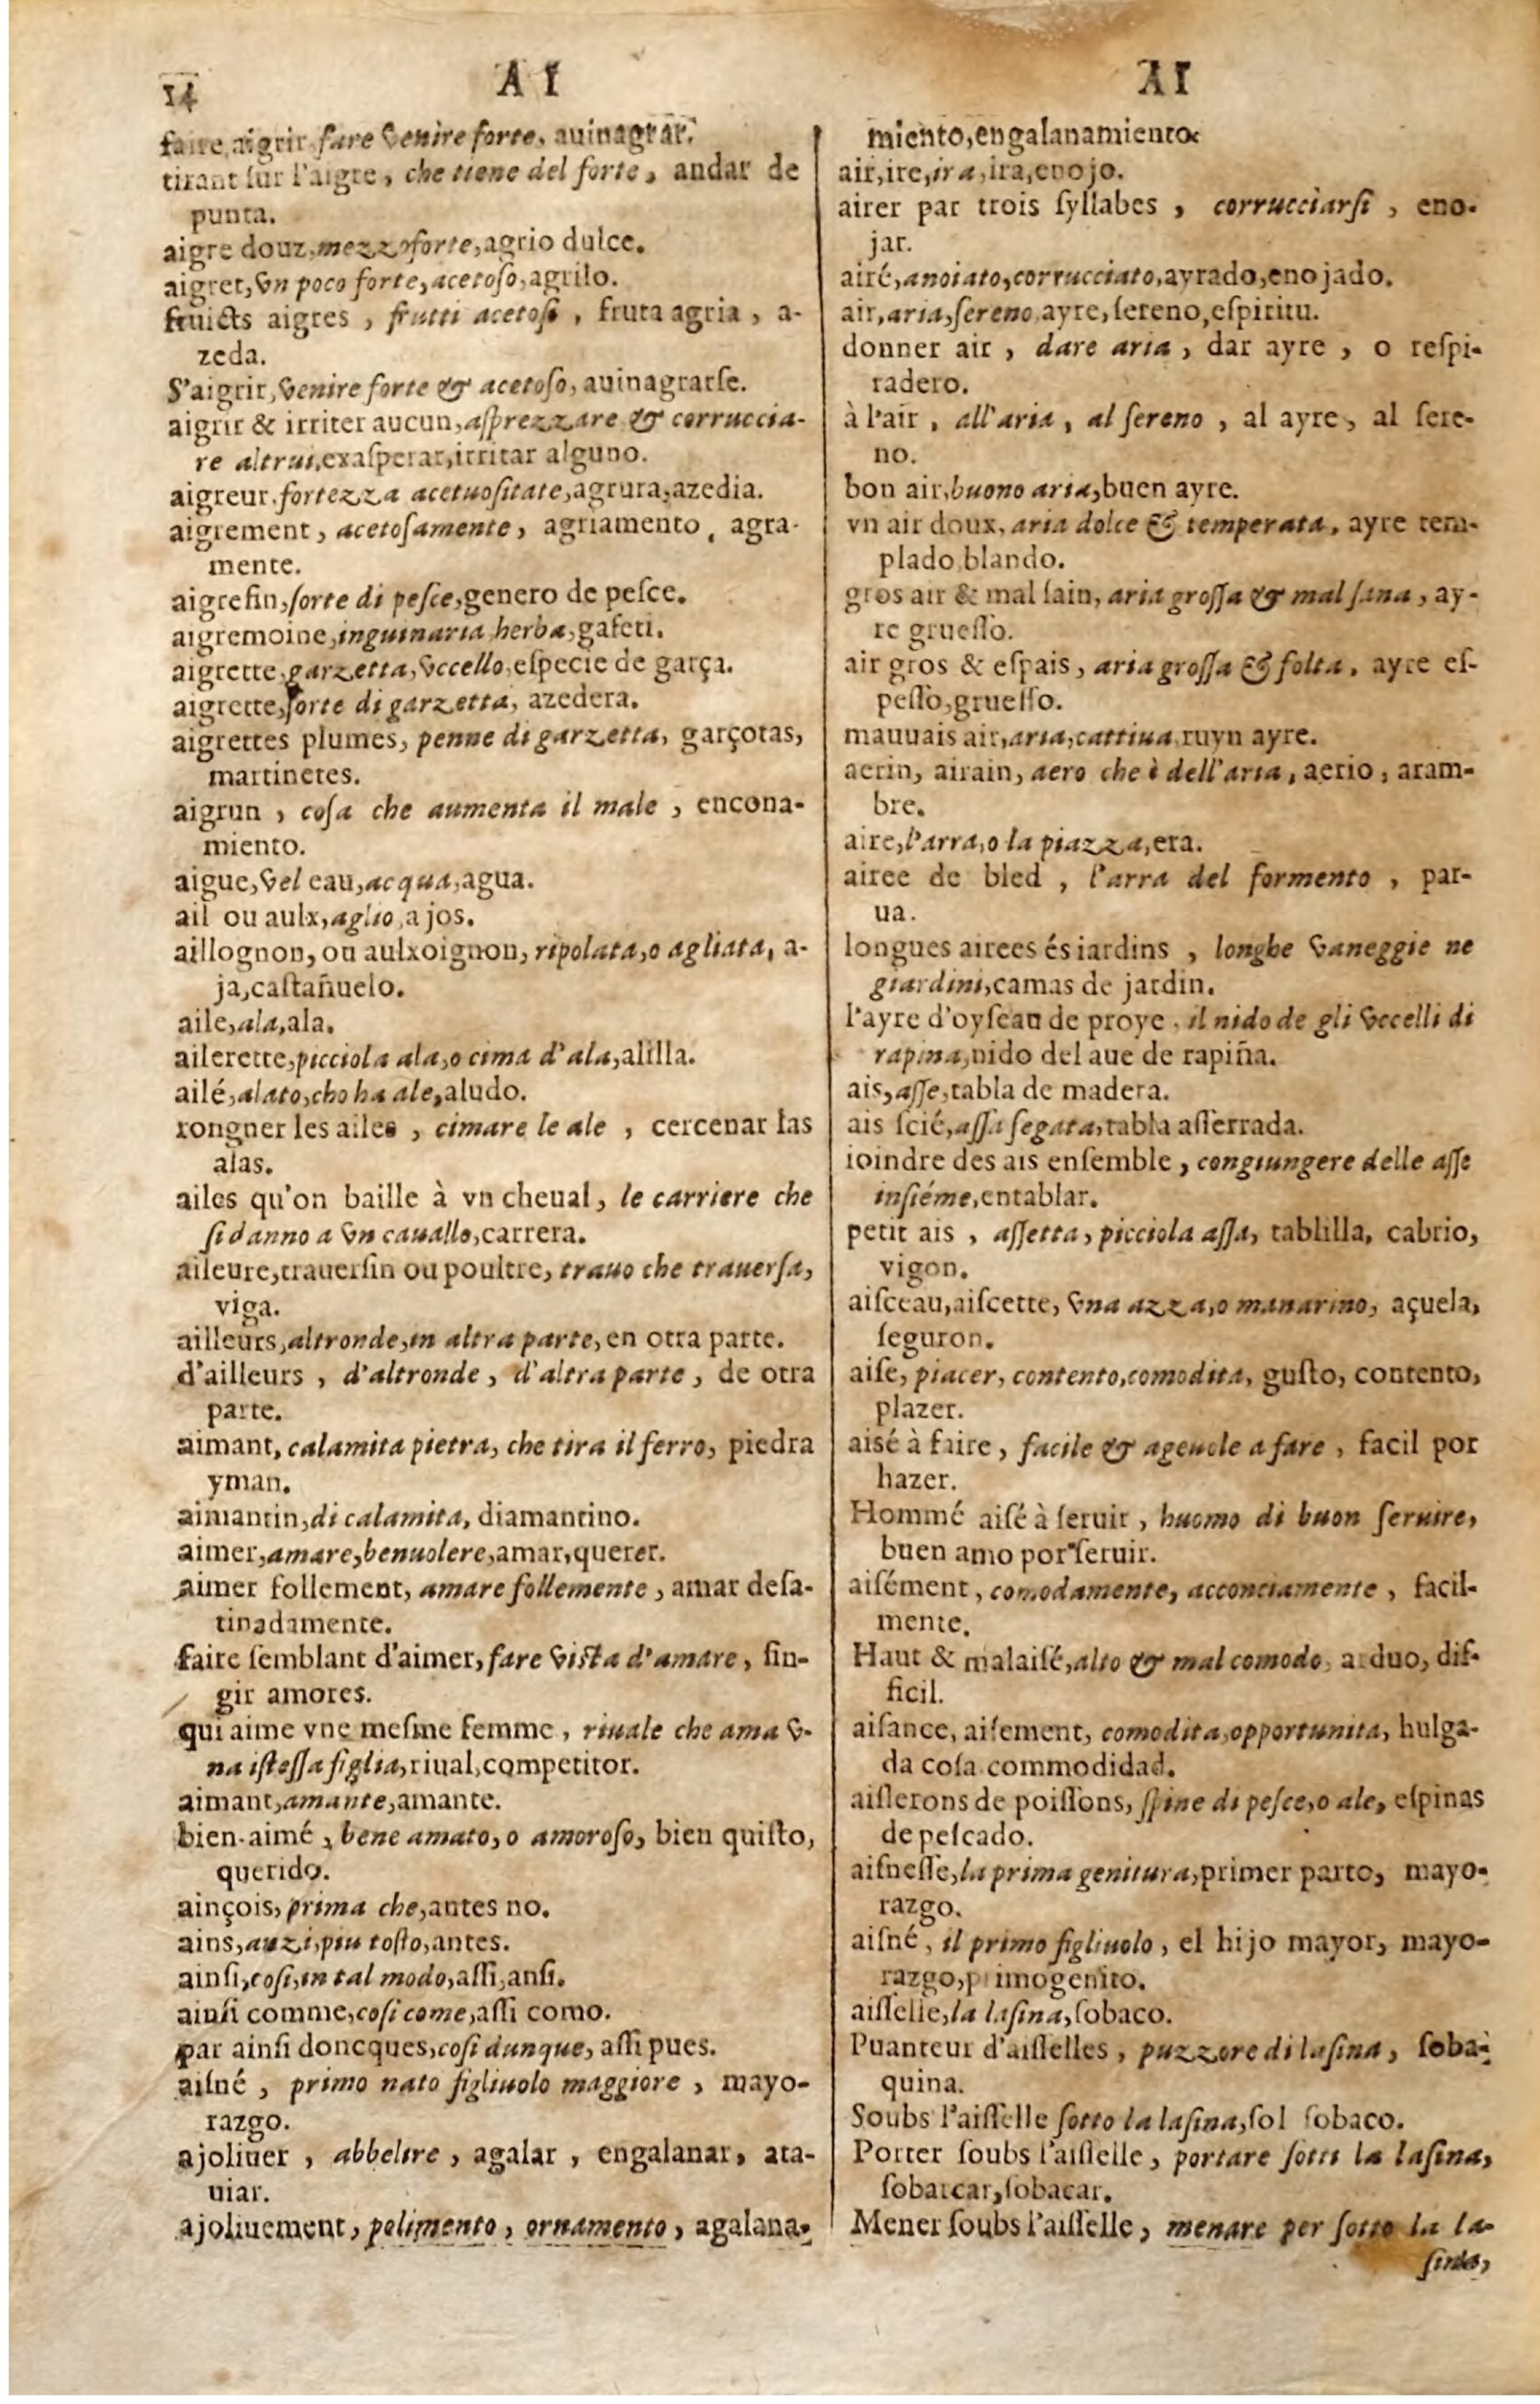 14
A I
faire aigrir fare venire forte, auinagrar.
tirant sur l'aigre, che tiene del forte, andar de
punta.
aigre douz, mezzo forte, agrio dulce.
aigret, vn poco forte, acetoſo, agrilo.
fruicts aigres, frutti acetoſi, fruta agria, a-
zeda.
S'aigrir, venire forte & acetoſo, auinagrarſe.
aigrir & irriter aucun, aſprezzare & corruccia-
re altrui, exaſperar, irritar alguno.
aigreur, fortezza acetuoſitate, agrura, azedia.
aigrement, acetoſamente, agriamento, agra-
mente.
aigrefin, ſorte di peſce, genero de peſce.
aigremoine, inguinaria herba, gafeti.
aigrette, garzetta, vccello, eſpecie de garça.
aigrette, ſorte di garzetta, azedera.
aigrettes plumes, penne di garzetta, garçotas,
martinetes.
aigrun, coſa che aumenta il male, encona-
miento.
aigue, vel eau, acqua, agua.
ail ou aulx, aglio, ajos.
aillognon, ou aulxoignon, ripolata, o agliata, a-
ja, caſtañuelo.
aile, ala, ala.
ailerette, picciola ala, o cima d'ala, alilla.
ailé, alato, cho ha ale, aludo.
rongner les ailes, cimare le ale, cercenar las
alas.
ailes qu'on baille à vn cheual, le carriere che
ſi danno a vn cauallo, carrera.
aileure, trauerſin ou poultre, trauo che trauerſa,
viga.
ailleurs, altronde, in altra parte, en otra parte.
d'ailleurs, d'altronde, d'altra parte, de otra
parte.
aimant, calamita pietra, che tira il ferro, piedra
yman.
aimantin, di calamita, diamantino.
aimer, amare, benuolere, amar, querer.
aimer follement, amare follemente, amar deſa-
tinadamente.
faire ſemblant d'aimer, fare viſta d'amare, fin-
gir amores.
qui aime vne meſme femme, riuale che ama v-
na iſteſſa figlia, riual, competitor.
aimant, amante, amante.
bien-aimé, bene amato, o amoroſo, bien quiſto,
querido.
ainçois, prima che, antes no.
ains, anzi, piu toſto, antes.
ainſi, coſi, in tal modo, aſſi, anſi.
ainſi comme, coſi come, aſſi como.
par ainſi doncques, coſi dunque, aſſi pues.
aiſné, primo nato figliuolo maggiore, mayo-
razgo.
ajoliuer, abbelire, agalar, engalanar, ata-
uiar.
ajoliuement, polimento, ornamento, agalana-
A I
miento, engalanamiento.
air, ire, ira, ira, enojo.
airer par trois ſyllabes, corrucciarſi, eno-
jar.
airé, anoiato, corrucciato, ayrado, enojado.
air, aria, ſereno ayre, ſereno, eſpiritu.
donner air, dare aria, dar ayre, o reſpi-
radero.
à l'air, all'aria, al ſereno, al ayre, al ſere-
no.
bon air, buono aria, buen ayre.
vn air doux, aria dolce & temperata, ayre tem-
plado blando.
gros air & mal ſain, aria groſſa & mal ſana, ay-
re grueſſo.
air gros & eſpais, aria groſſa & folta, ayre eſ-
peſſo, grueſſo.
mauuais air, aria, cattiua ruyn ayre.
aerin, airain, aero che è dell'aria, aerio, aram-
bre.
aire, l'arra, o la piazza, era.
airee de bled, l'arra del formento, par-
ua.
longues airees és iardins, longhe vaneggie ne
giardini, camas de jardin.
l'ayre d'oyſeau de proye, il nido de gli vccelli di
rapina, nido del aue de rapiña.
ais, aſſe, tabla de madera.
ais ſcié, aſſa ſegata, tabla aſſerrada.
ioindre des ais enſemble, congiungere delle aſſe
inſiéme, entablar.
petit ais, aſſetta, picciola aſſa, tablilla, cabrio,
vigon.
aiſceau, aiſcette, vna azza, o manarino, açuela,
ſeguron.
aiſe, piacer, contento, comodita, guſto, contento,
plazer.
aisé à faire, facile & ageuole a fare, facil por
hazer.
Hommé aiſé à ſeruir, huomo di buon ſeruire,
buen amo por ſeruir.
aiſément, comodamente, acconciamente, facil-
mente.
Haut & malaiſé, alto & mal comodo, arduo, dif-
ficil.
aiſance, aiſement, comodita, opportunita, hulga-
da coſa commodidad.
aiſlerons de poiſſons, ſpine di peſce, o ale, eſpinas
de peſcado.
aiſneſſe, la prima genitura, primer parto, mayo-
razgo.
aiſné, il primo figliuolo, el hijo mayor, mayo-
razgo, primogenito.
aiſſelle, la laſina, ſobaco.
Puanteur d'aiſſelles, puzzore di laſina, ſoba-
quina.
Soubs l'aiſſelle ſotto la laſina, ſol ſobaco.
Porter ſoubs l'aiſſelle, portare ſotti la laſina,
ſobarcar, ſobacar.
Mener ſoubs l'aiſſelle, menare per ſotto la la-
ſina,